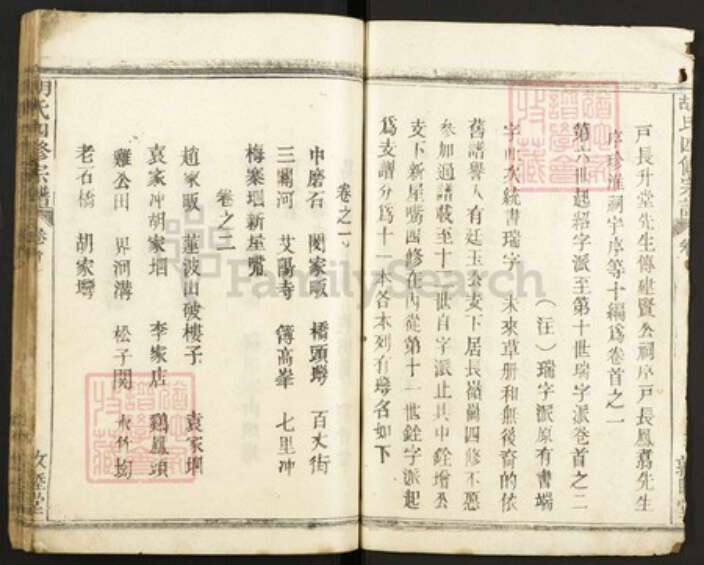 胡氏四修宗譜
戸長升堂先生傳建賢公祠序戸長鳳翥先生
序珍淮祠字序等十編爲卷首之一
第六世起紹字派至第十世瑞字派卷首之二
(注)瑞字派原有書端
字此次統書瑞字 未來草册和無後裔的依
舊譜舉入有廷玉公支下居長嶺崗四修不愿
參加過譜載至十二世自字派止其中銓增公
支下新屋嘴四修在內從第十一世銓字派起
爲支譜分爲十一本各本列有灣名如下
卷之一
中磨石 閔家畈 橋頭灣 百丈街
三關河 艾陽寺 簿高峯 七里冲
梅寨堌新屋嘴
卷之二
趙家畈 蓮波山破樓子 袁家堌
袁家冲胡家堌 李家店 鷄鳳頭
雞公田 界河溝 松子関 水竹
老石橋 胡家灣
胡氏四修宗譜
卷首
敦睦堂
FamilySearch